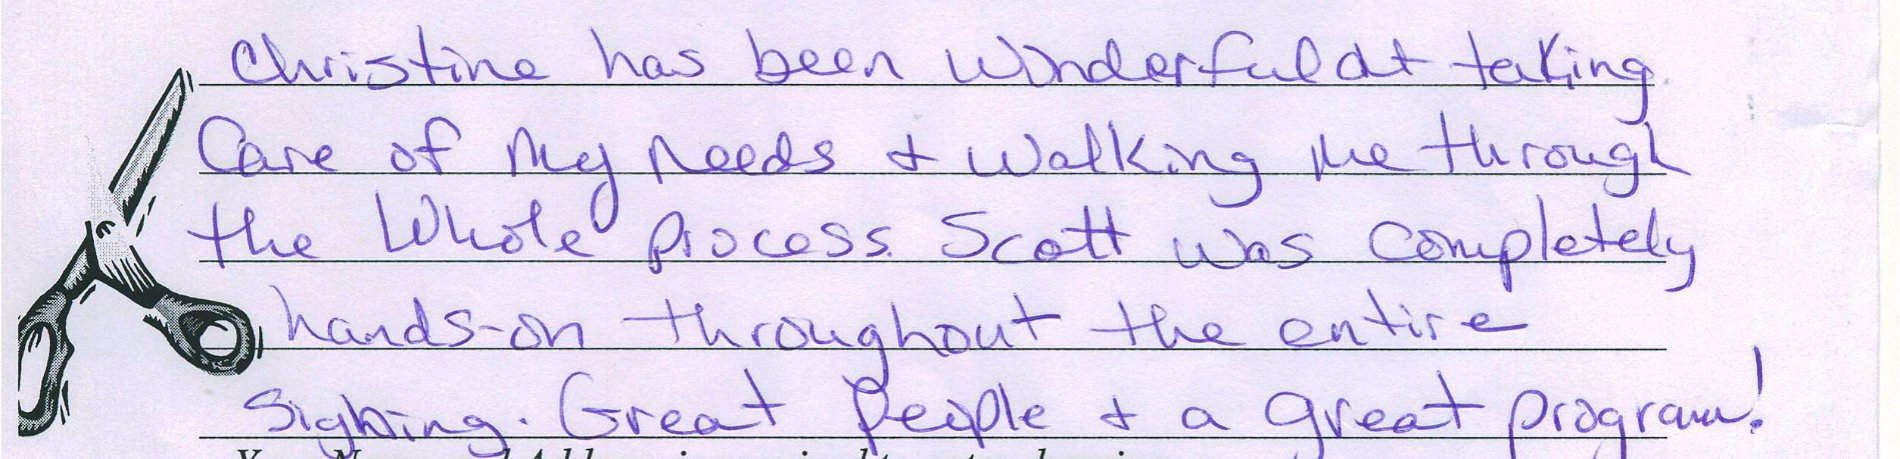 Christine has been wonderful at taking
Care of My needs + walking me through
the Whole process. Scott was completely
hands-on throughout the entire
signing. Great People + a great program!